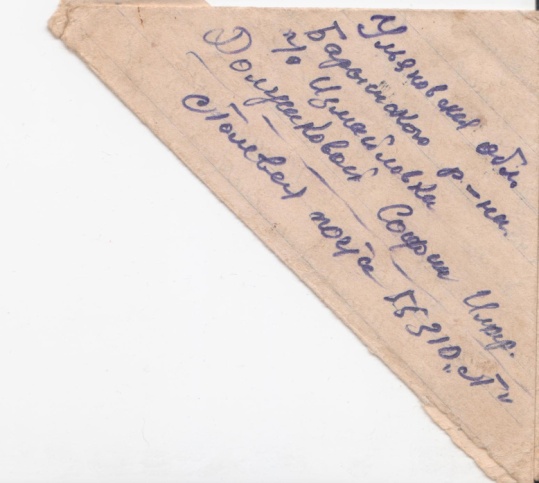 Ульяновская обл
Барышского р-на.
п/о Измайловка
Долушковой Софии
с Полевая почта 55310